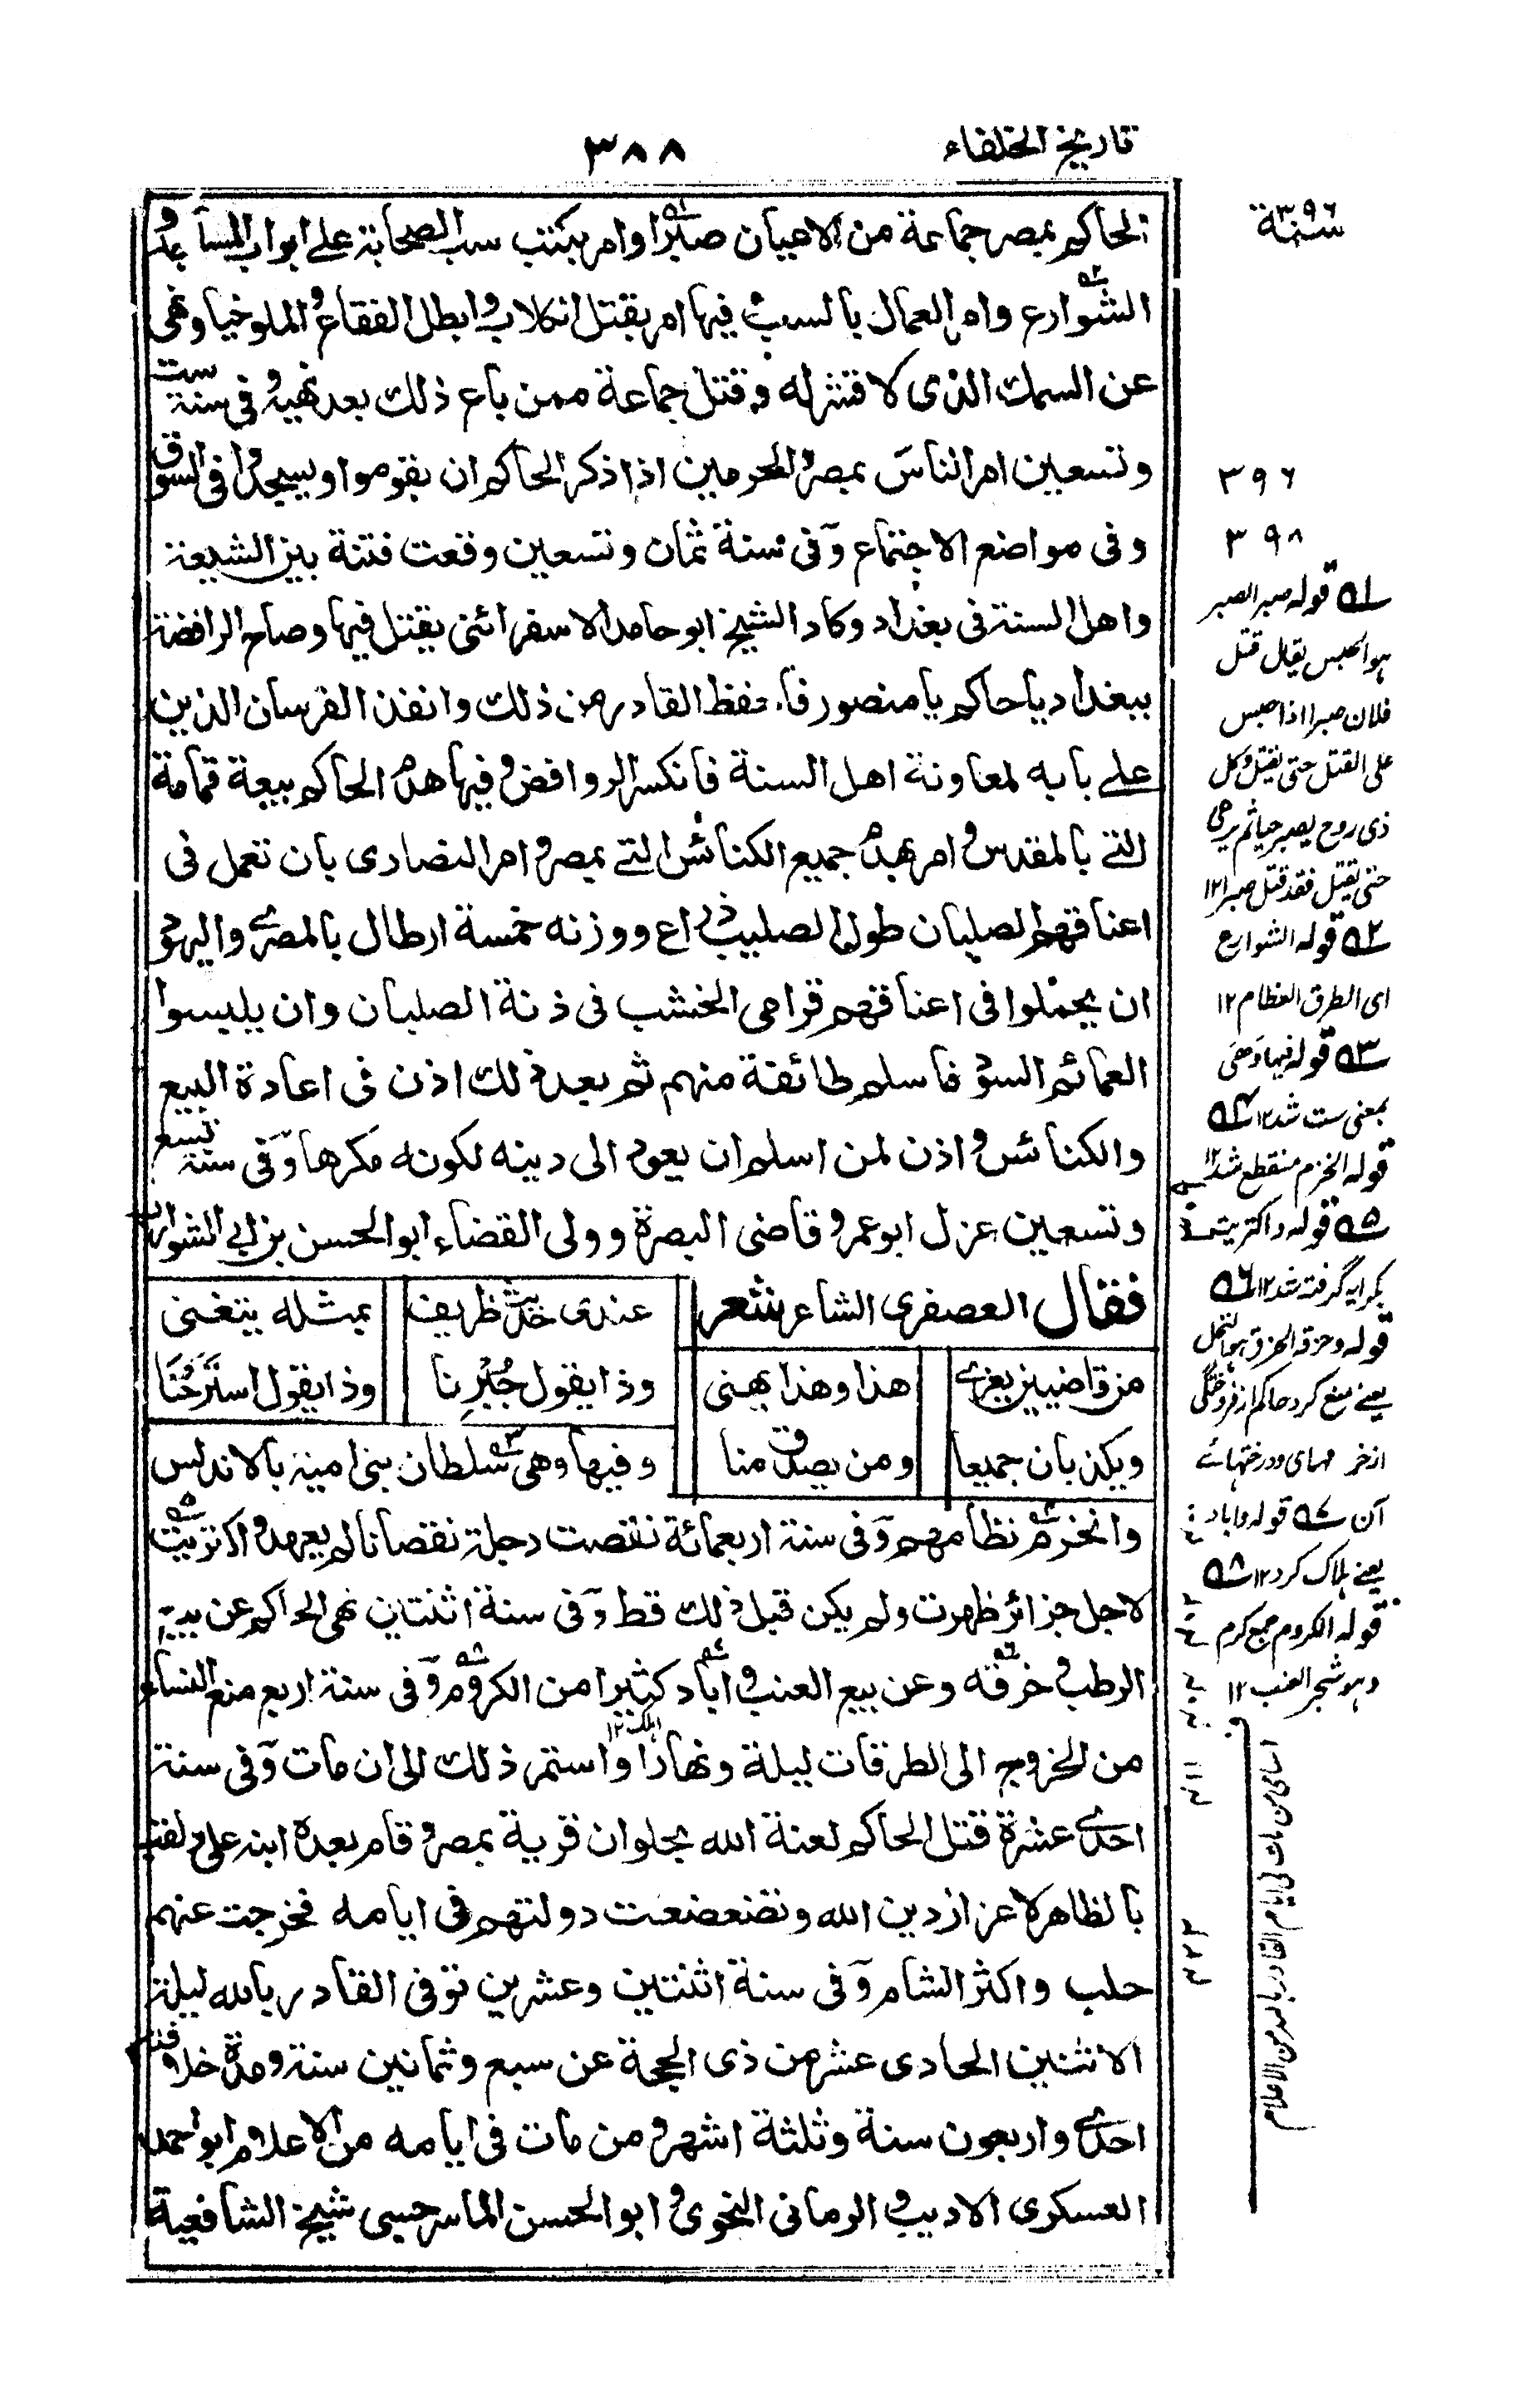 تاريخ الخلفاء
٣٨٨
الحاكم بمصر جماعة من الاعيان صبرا وامر بكتب سب الصحابة على ابواب المساجد و
الشوارع وامر العمال بالسب وفيها امر بقتل الكلاب وابطل الفقاع والملوخيا ونهى
عن السمك الذى لا قشر له وقتل جماعة ممن باع ذلك بعد نهيه وفى سنة ست
وتسعين امر الناس بمصر والحرمين اذا ذكر الحاكم ان يقوموا ويسجدوا فى السوق
وفى مواضع الاجتماع وفى سنة ثمان وتسعين وقعت فتنة بين الشيعة
واهل السنة فى بغداد وكاد الشيخ ابو حامد الاسفرائنى يقتل فيها وصاح الرافضة
ببغداد ياحاكم يا منصور فاحفظ القادر من ذلك وانفذ الفرسان الذين
على بابه لمعاونة اهل السنة فانكسر الروافض وفيها هدم الحاكم بيعة قمامة
التى بالمقدس وامر بهدم جميع الكنائس التى بمصر وامر النصارى بان تعمل فى
اعناقهم الصلبان طول الصليب ذراع ووزنه خمسة ارطال بالمصرى واليهود
ان يحملوا فى اعناقهم قرامى الخشب فى زنة الصلبان وان يلبسوا
العمائم السود فاسلم طائفة منهم ثم بعد ذلك اذن فى اعادة البيع
والكنائس واذن لمن اسلم ان يعود الى دينه لكونه مكرها وفى سنة تسع
وتسعين عزل ابو عمرو قاضى البصرة وولى القضاء ابو الحسن بن ابى الشوارب
فقال العصفرى الشاعر شعر
عندى حديث ظريف
بمثله يتغنى
من قاضيين يعزى
هذا وهذا يهنى
وذا يقول جبرنا
وذا يقول استرحنا
ويكذبان جميعا
ومن يصدق منا
وفيها وهى سلطان بنى امية بالاندلس
وانخرم نظامهم وفى سنة اربعمائة نقصت دجلة نقصانا لم يعهد واكتريت
لاجل جزائر ظهرت ولم يكن قبل ذلك قط وفى سنة اثنتين نهى الحاكم عن بيع
الرطب وحرقه وعن بيع العنب واباد كثيرا من الكروم وفى سنة اربع منع النساء
اهلك ١٢
من الخروج الى الطرقات ليلة ونهارا واستمر ذلك الى ان مات وفى سنة
احدى عشرة قتل الحاكم لعنة الله بحلوان قرية بمصر وقام بعده ابنه على ولقب
بالظاهر لاعزاز دين الله وتضعضعت دولتهم فى ايامه فخرجت عنهم
حلب واكثر الشام وفى سنة اثنتين وعشرين توفى القادر بالله ليلة
الاثنين الحادى عشر من ذى الحجة عن سبع وثمانين سنة ومدة خلافته
احدى واربعون سنة وثلثة اشهر ومن مات فى ايامه من الاعلام ابو احمد
العسكرى الاديب والرمانى النحوى وابو الحسن الماسرجسى شيخ الشافعية
سنة ٣٩٦
٣٩٦
٣٩٨
١ قوله صبر الصبر
هو الحبس يقال قتل
فلان صبرا اذا حبس
على القتل حتى يقتل وكل
ذى روح يصبر حيا ثم يرمى
حتى يقتل فقد قتل صبرا ١٢
٢ قوله الشوارع
اى الطرق العظام ١٢
٣ قوله فيها وهى
بمعنى ست شد ١٢ ٤
قوله انخرم منقطع شد ١٢
٥ قوله واكتريت
بكرايه گرفته شد ١٢ ٦
قوله وحرقه الحرق
يعنے منع كرد حاكم از فروختگى
از خرماهاى ودرختهاے
آن ٧ قوله واباد
يعنے هلاك كرد ١٢ ٨
قوله الكروم جمع كرم
وهو شجر العنب ١٢
٤١١
٤٢٢
اسامى من مات فى ايام القادر بالله من الاعلام